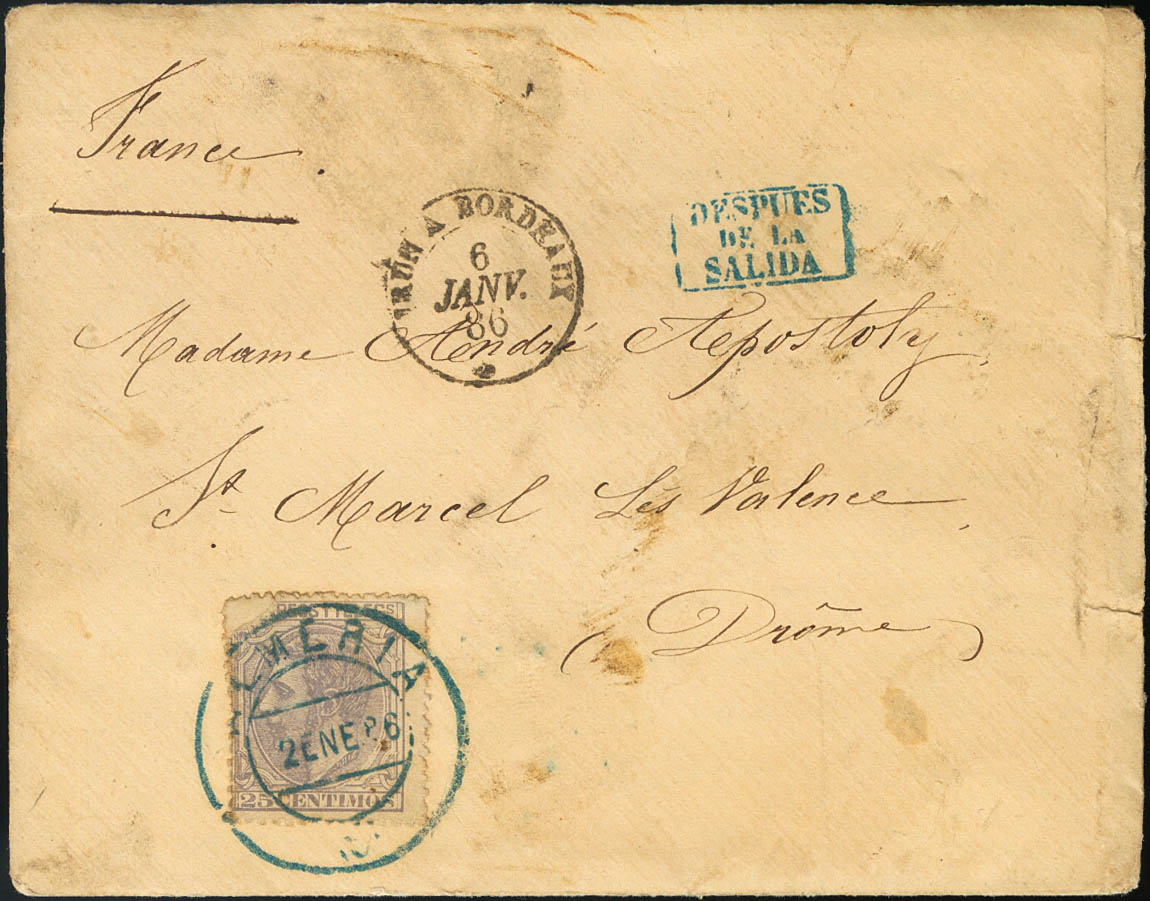 France
IRUN A BORDEAUX
6
JANV.
86
DESPUES
DE LA
SALIDA
Madame André Apostoly
St Marcel Lès Valence
(Drôme)
ALMERIA
2 ENE 86
25 CENTIMOS